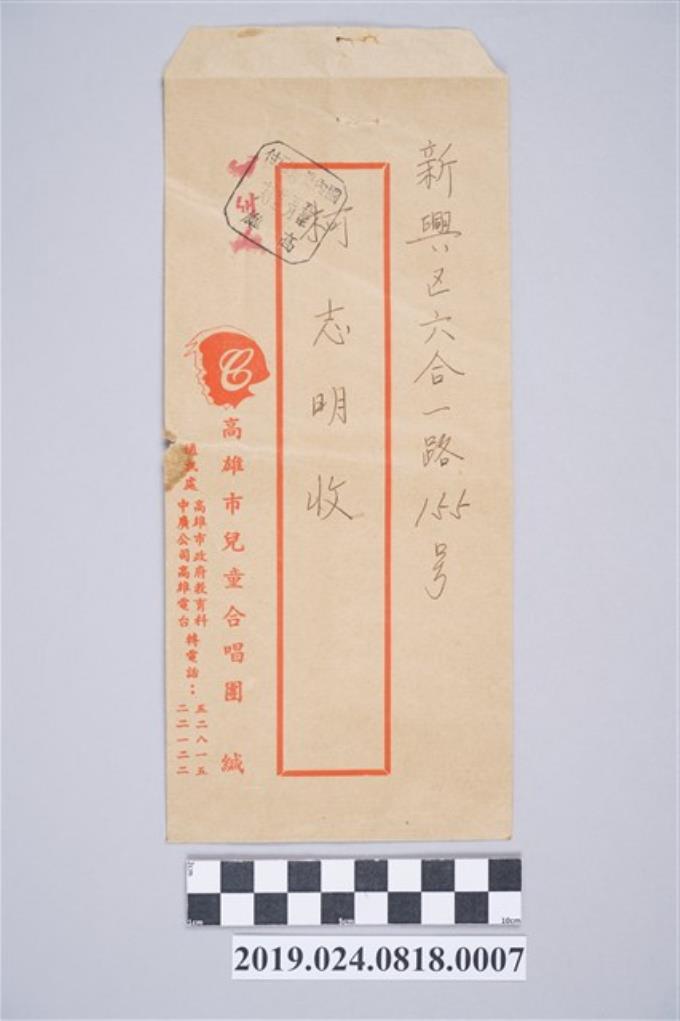 新興区六合一路155号
柯志明收
國內
付
高雄
C
高雄市兒童合唱團 緘
通訊處
高雄市政府教育科
中廣公司高雄電台
轉電話：
五二八一五
二二一二二
2cm
1cm
5cm
10cm
2019.024.0818.0007